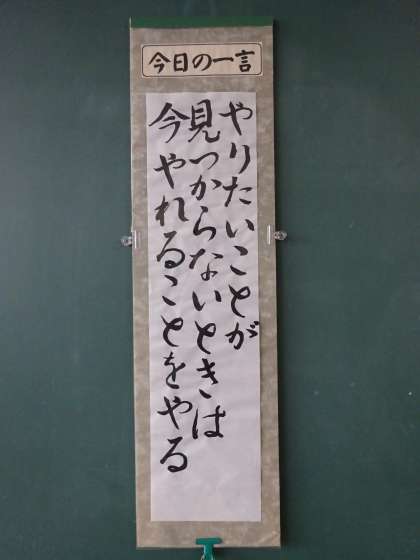 今日の一言
やりたいことが
見つからないときは
今やれることをやる